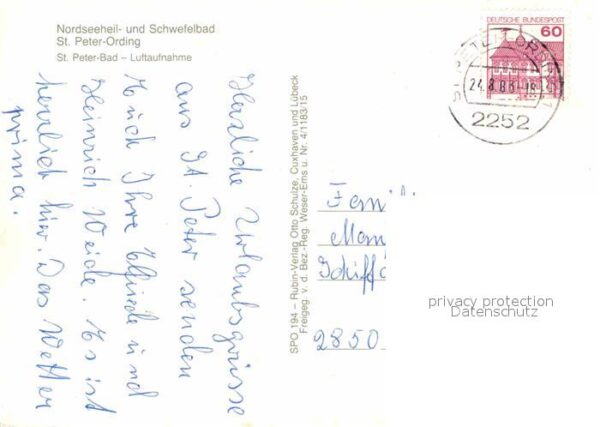 Nordseeheil- und Schwefelbad
St. Peter-Ording
St. Peter-Bad – Luftaufnahme
DEUTSCHE BUNDESPOST
60
ST. PETER-ORDING 1
24.8.8
2252
Herzliche Urlaubsgrüsse
aus St. Peter senden
Euch Ihre Elfriede und
Heinrich Weide. Es ist
herrlich hier. Das Wetter
prima.
SPO 194 – Rubin-Verlag Otto Schulze, Cuxhaven und Lübeck
Freigeg. v. d. Bez.-Reg. Weser-Ems u. Nr. 4/1183/15
Fam
Schiff
2850
privacy protection
Datenschutz